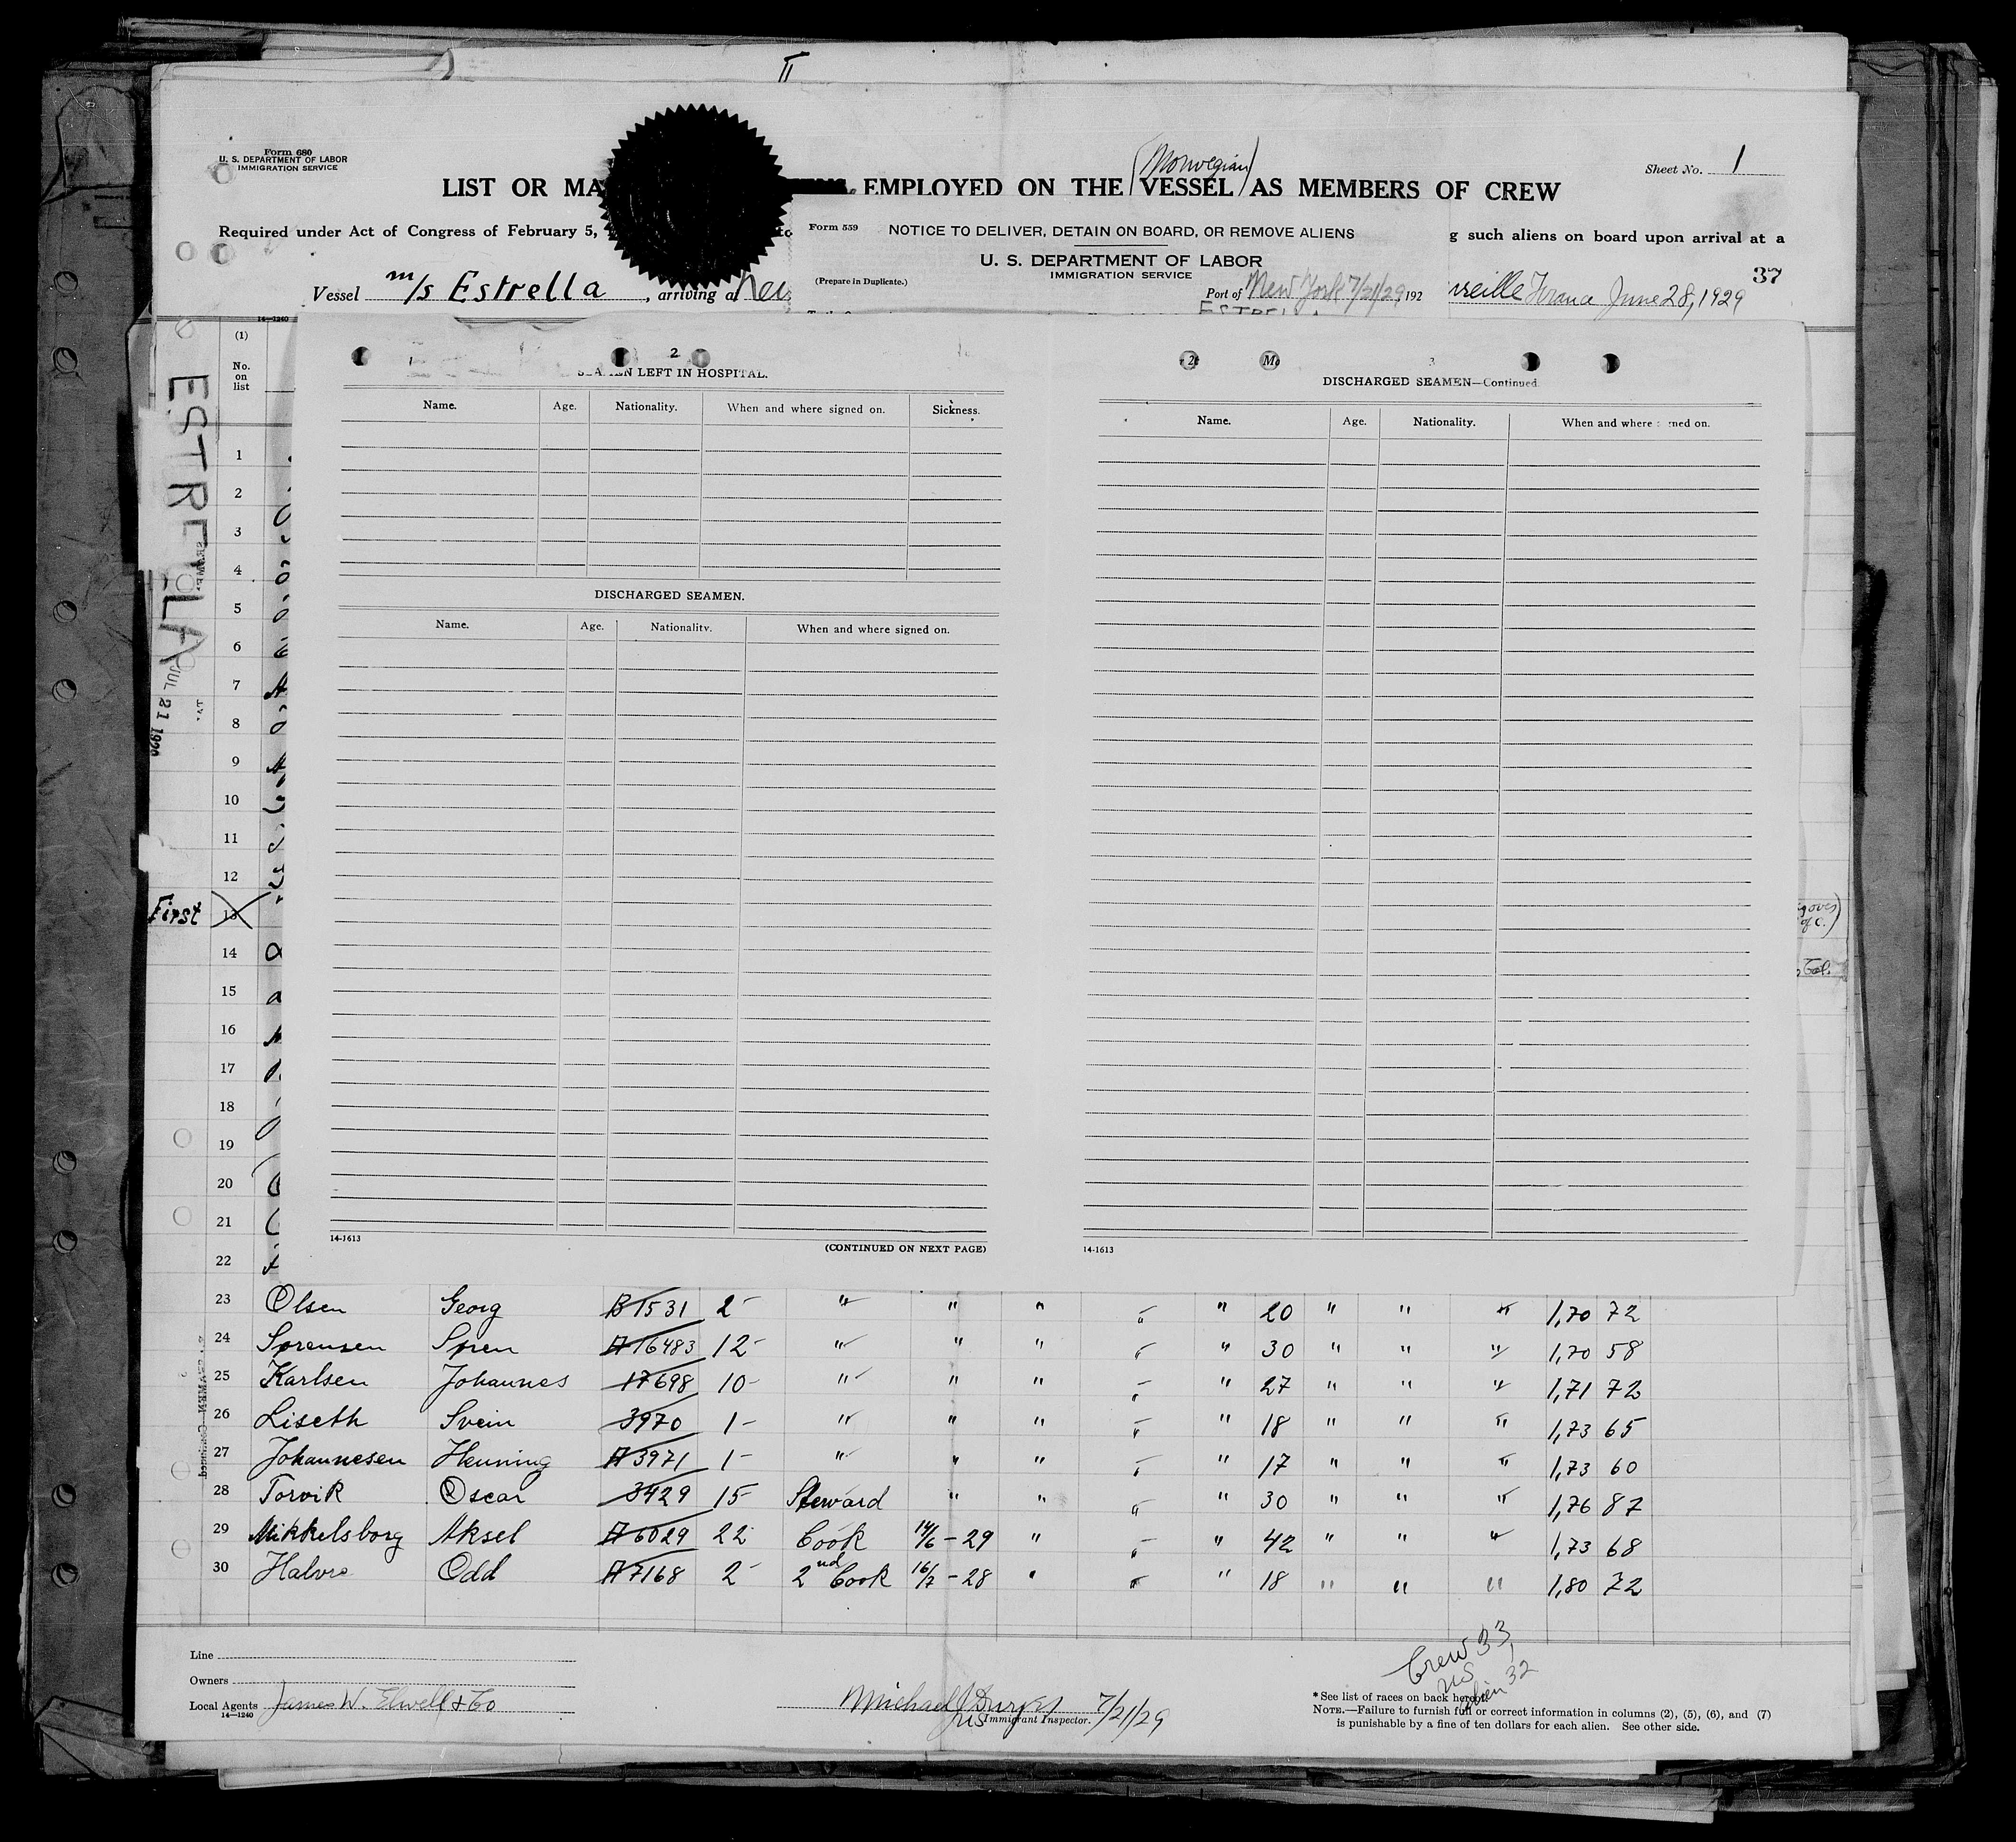 II
Form 680
U. S. DEPARTMENT OF LABOR
IMMIGRATION SERVICE
Sheet No. 1
(Norwegian)
LIST OR MA EMPLOYED ON THE VESSEL AS MEMBERS OF CREW
Required under Act of Congress of February 5, to
g such aliens on board upon arrival at a
Form 559 NOTICE TO DELIVER, DETAIN ON BOARD, OR REMOVE ALIENS
U. S. DEPARTMENT OF LABOR
IMMIGRATION SERVICE
(Prepare in Duplicate.)
Port of New York 7/21/29, 192
ESTRELLA
Vessel m/s Estrella, arriving at New
rseille France June 28, 1929
37
14-1240
(1)
No. on list
ESTRELLA
JUL 21 1929
2
SEAMEN LEFT IN HOSPITAL.
Name. Age. Nationality. When and where signed on. Sickness.
DISCHARGED SEAMEN.
Name. Age. Nationality. When and where signed on.
14-1613
(CONTINUED ON NEXT PAGE)
3
DISCHARGED SEAMEN—Continued
Name. Age. Nationality. When and where signed on.
14-1613
1
2
3
4
5
6
7
8
9
10
11
12
First 13
14
15
16
17
18
19
20
21
22
23 Olsen Georg B 1531 2- " " " " " 20 " " " 1,70 72
24 Sørensen Søren A 16483 12- " " " " " 30 " " " 1,70 58
25 Karlsen Johannes 17698 10- " " " " " 27 " " " 1,71 72
26 Liseth Svein 3970 1- " " " " " 18 " " " 1,73 65
27 Johannesen Henning A 3971 1- " " " " " 17 " " " 1,73 60
28 Torvik Oscar 3429 15- Steward " " " " 30 " " " 1,76 87
29 Mikkelsborg Aksel A 6029 22 Cook 14/6-29 " " " 42 " " " 1,73 68
30 Halvrs Odd A 7168 2- 2nd Cook 16/7-28 " " " 18 " " " 1,80 72
Crew 33,
US
Alien 32
Line
Owners
Local Agents James W. Elwell & Co
14-1240
Michael J 7/21/29
Immigrant Inspector.
* See list of races on back hereof.
NOTE.—Failure to furnish full or correct information in columns (2), (5), (6), and (7)
is punishable by a fine of ten dollars for each alien. See other side.